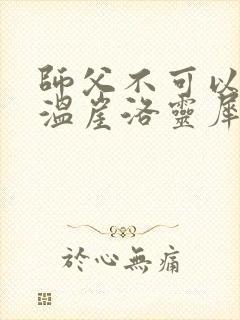 師父不可以
溫崖洛靈犀
於心無痛